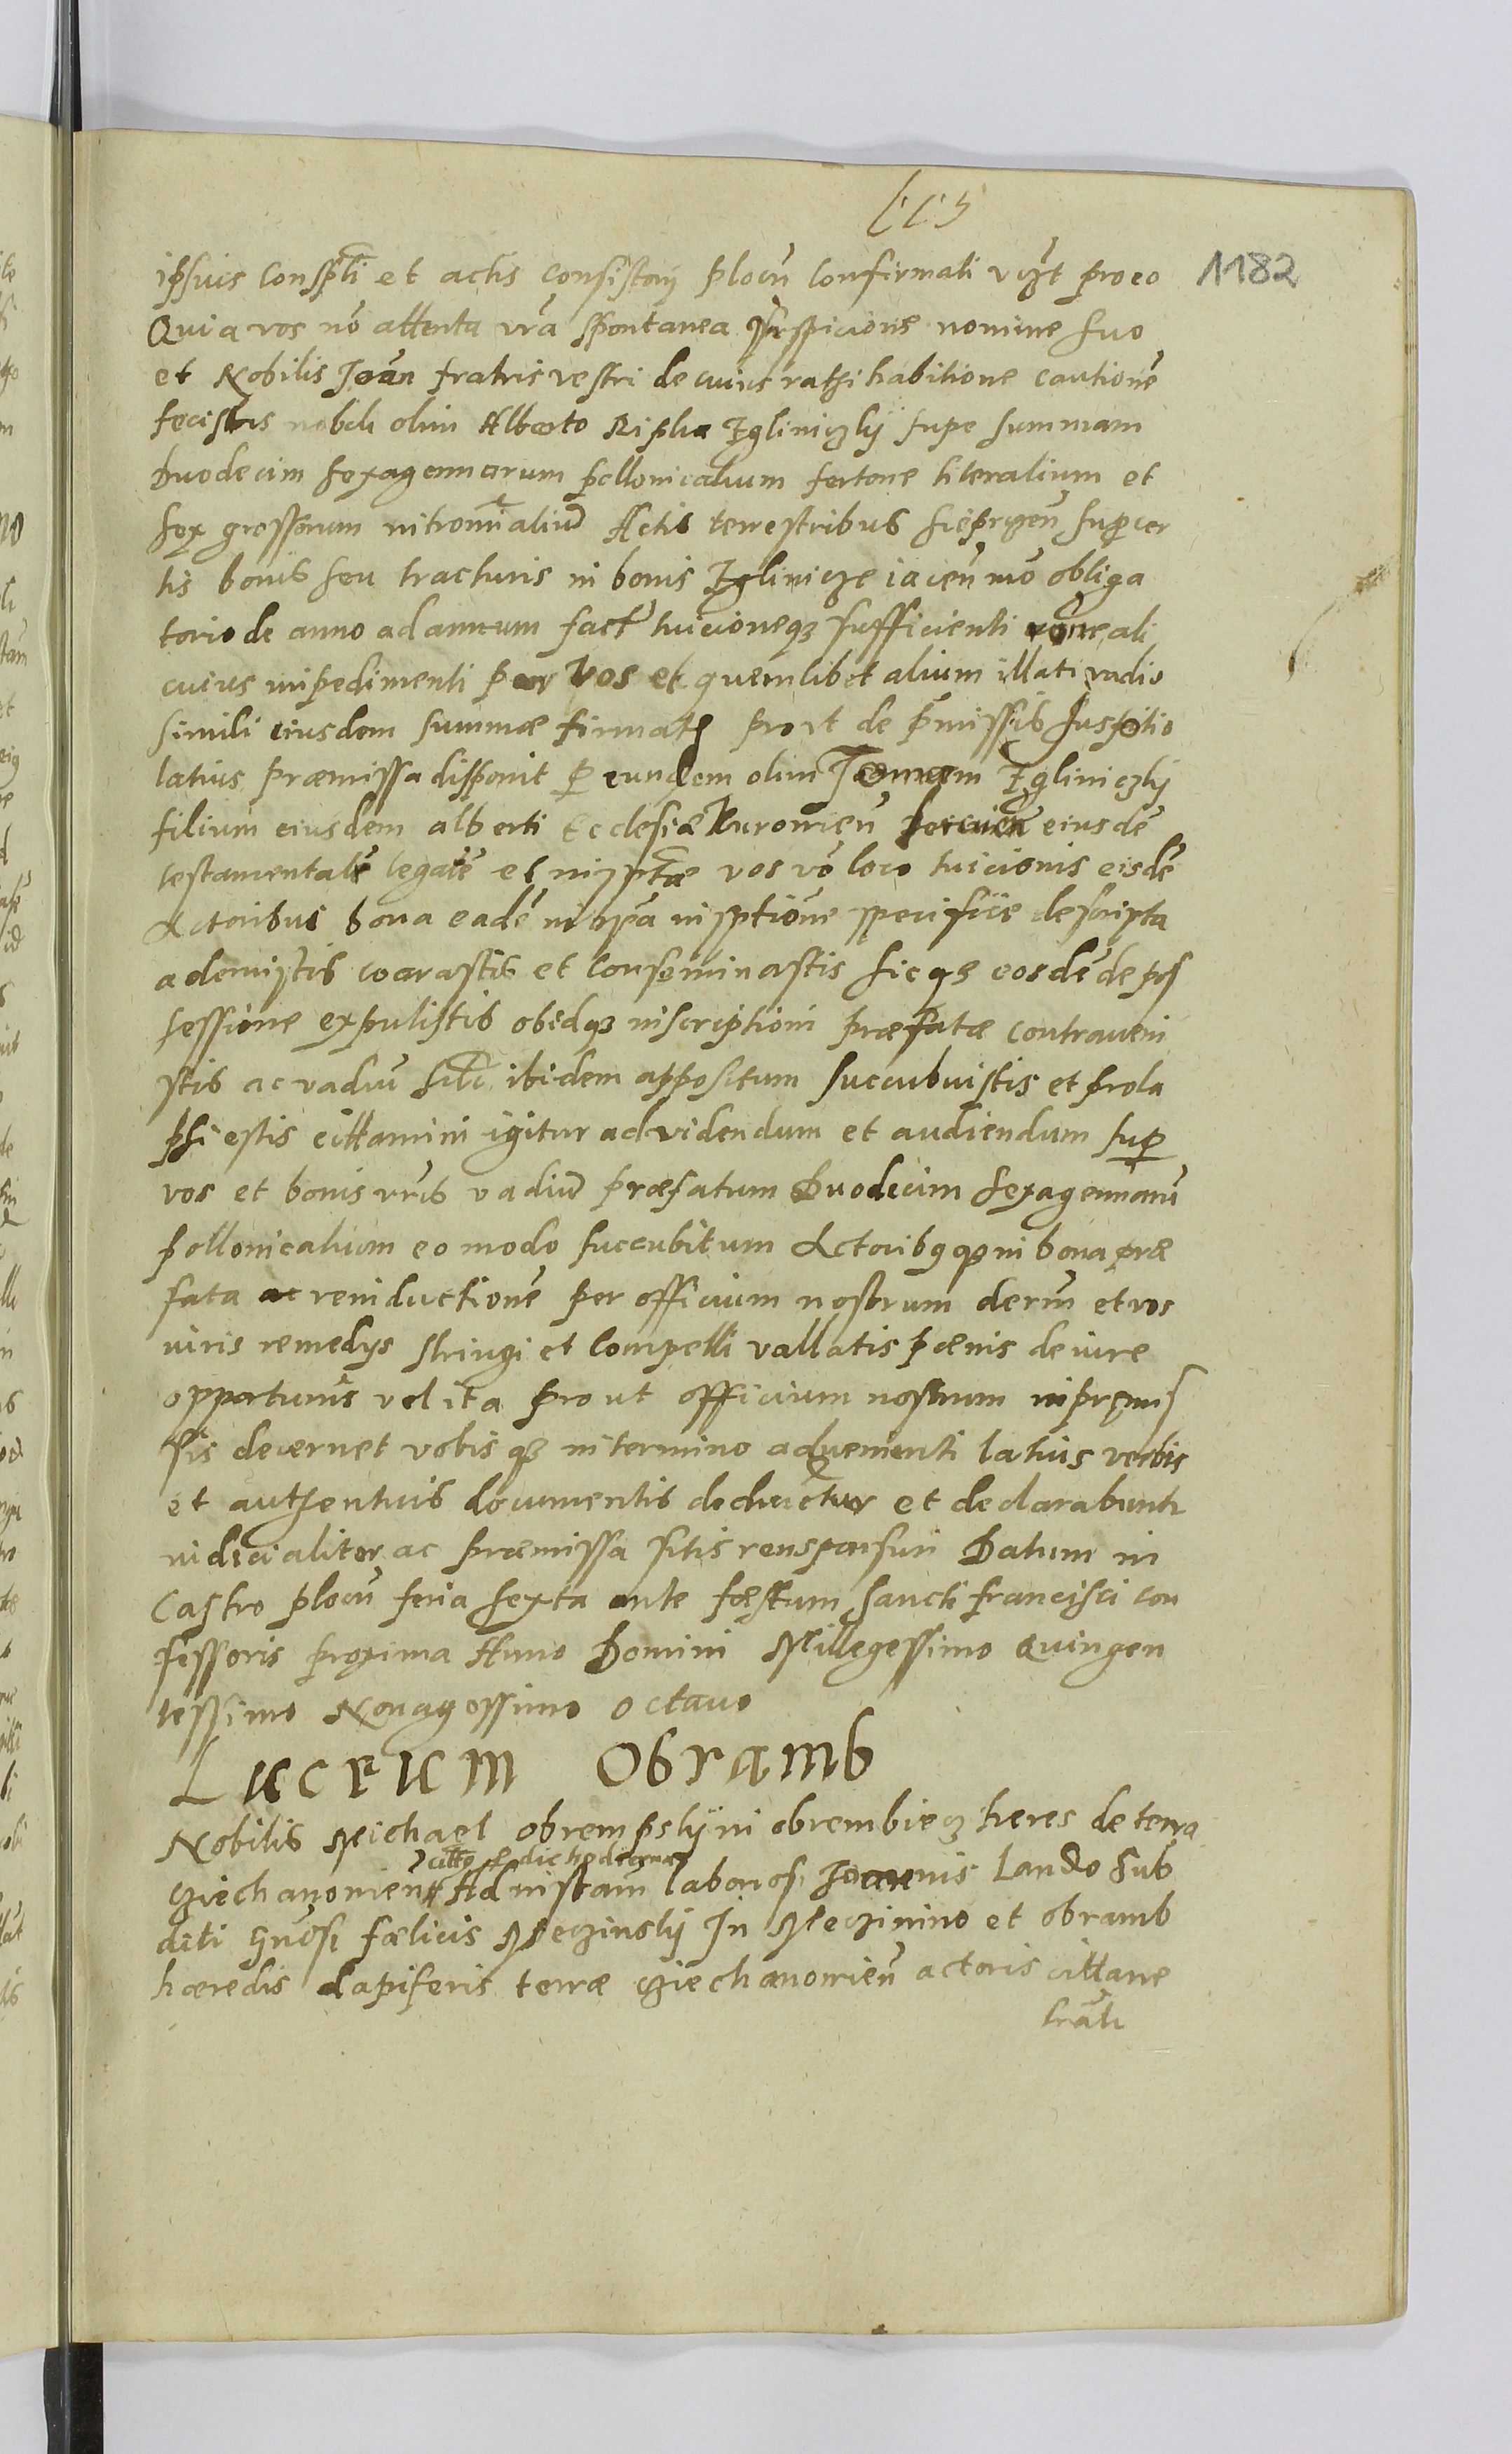 1182
ipsius Conspti et actis Consistorij plocen Confirmati vigzt pro eo
Quia vos no attenta vra spontanea suspicione nomine suo
et Nobilis Joan fratris vestri de cuius rathihabitione cautione
fecistis nobili olim Alberto Zgliniczky supe summam
Duodecim sexagennarum pollonicalium fertone literalium et
sex grossorum Actis terrestribus super cer
tis bonis seu tracturis in bonis Zglinicze iacen mo obliga
torio de anno ad annum fact tuicioneqz sufficienti rone ali
cuius impedimenti per vos et quemlibet alium illati vadio
simili eiusdem summae firmata prout de pmissis
latius praemissa disponit p eundem olim Zgliniczky
filium eiusdem alberti Ecclesiae eiusde
testamentale legate et vos vo loco tuicionis eisde
Actoribus bona eade in ipsa insptione specifice descripta
ademistis coarastis et Conseminastis sicqz eosde de pos
sessione expulistis obidqz inscriptioni praefatae contraveni
stis ac vadiu ibidem appositum succubuistis et prola
psi estis cittamini igitur ad videndum et audiendum sup
vos et bonis vris vadiu praefatum Duodecim sexagennaru
pollonicalium eo modo succubitum Actoribqz in bona prae
fata ac reinductione per officium nostrum et vos
iuris remedys stringi et Compelli vallatis paenis de iure
opportunis vel ita prout officium nostrum in premis
sis decernet vobis qz in termino advenienti latius verbis
et authenticis documentis deductur et declarabunt
iudicialiter ac praemissa sitis responsuri Datum in
Castro plocen feria sexta ante faestum sancti francisci con
fessoris proxima Anno Domini Millegessimo Quingen
tessimo Nonagessimo octavo
Lucrum Obramb
Nobilis Michael obrempsky in obrembiecz heres de terra
citto p die hodierna
Cziechanonien Ad instam laboriosi Joannis Lando Sub
diti Gnosi faelicis Meczinsky In Meczinino et obramb
haeredis dapiferis terrae Cziechanonien actoris cittatre